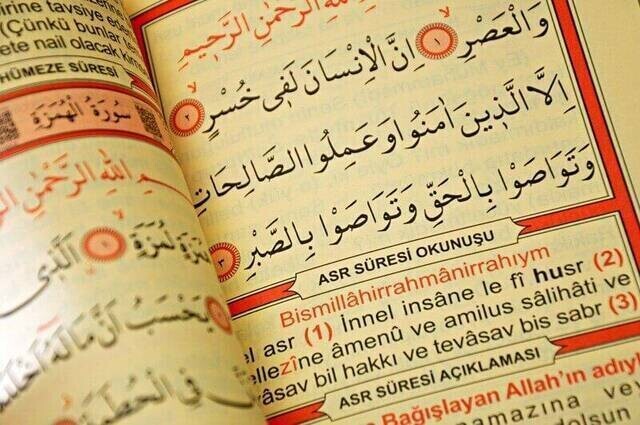 tavsiye
(Çünkü bunlar
nail olacak
HÜMEZE SÛRESİ
سُورَةُ الْهُمَزَةِ
اللهِ الرَّحْمٰنِ
لُمَزَةٍۙ ﴿١﴾ اَلَّذٖى
يَحْسَبُ اَنَّ مَالَهُٓ
فِى
اللهِ الرَّحْمٰنِ الرَّحٖيمِ
وَالْعَصْرِۙ ﴿١﴾ اِنَّ الْاِنْسَانَ لَفٖى خُسْرٍۙ ﴿٢﴾
اِلَّا الَّذٖينَ اٰمَنُوا وَعَمِلُوا الصَّالِحَاتِ
وَتَوَاصَوْا بِالْحَقِّ وَتَوَاصَوْا بِالصَّبْرِ ﴿٣﴾
ASR SÛRESİ OKUNUŞU
Bismillâhirrahmânirrahıym
el asr (1) İnnel insâne le fî husr (2)
ellezîne âmenû ve amilus sâlihâti ve
vâsav bil hakkı ve tevâsav bis sabr (3)
ASR SÛRESİ AÇIKLAMASI
Bağışlayan Allah'ın adıyl
namazına ve